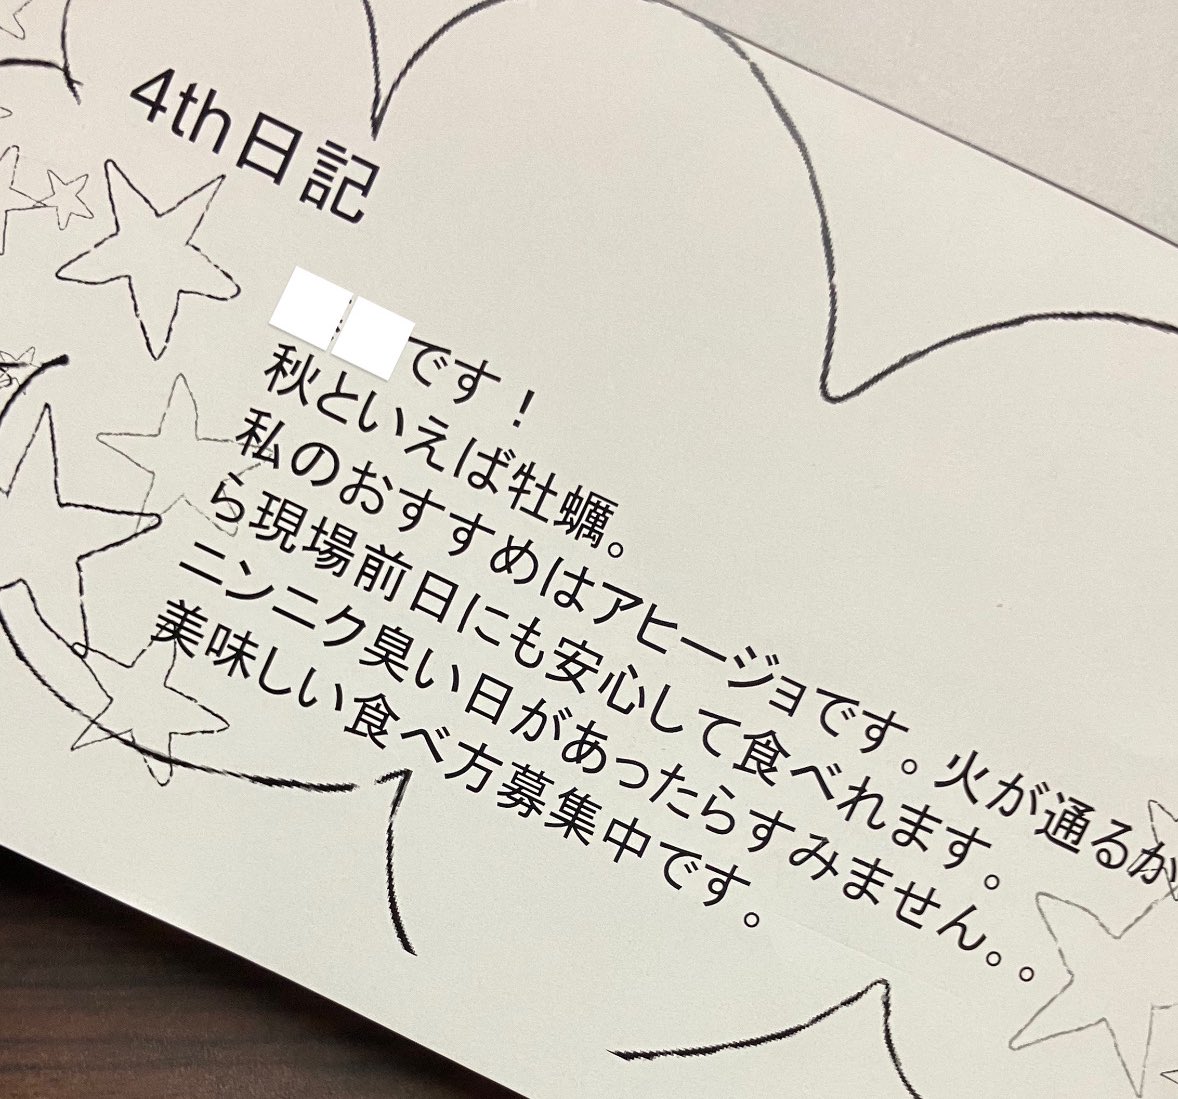 4th日記
です！
秋といえば牡蠣。
私のおすすめはアヒージョです。火が通るか
ら現場前日にも安心して食べれます。
ニンニク臭い日があったらすみません。。
美味しい食べ方募集中です。